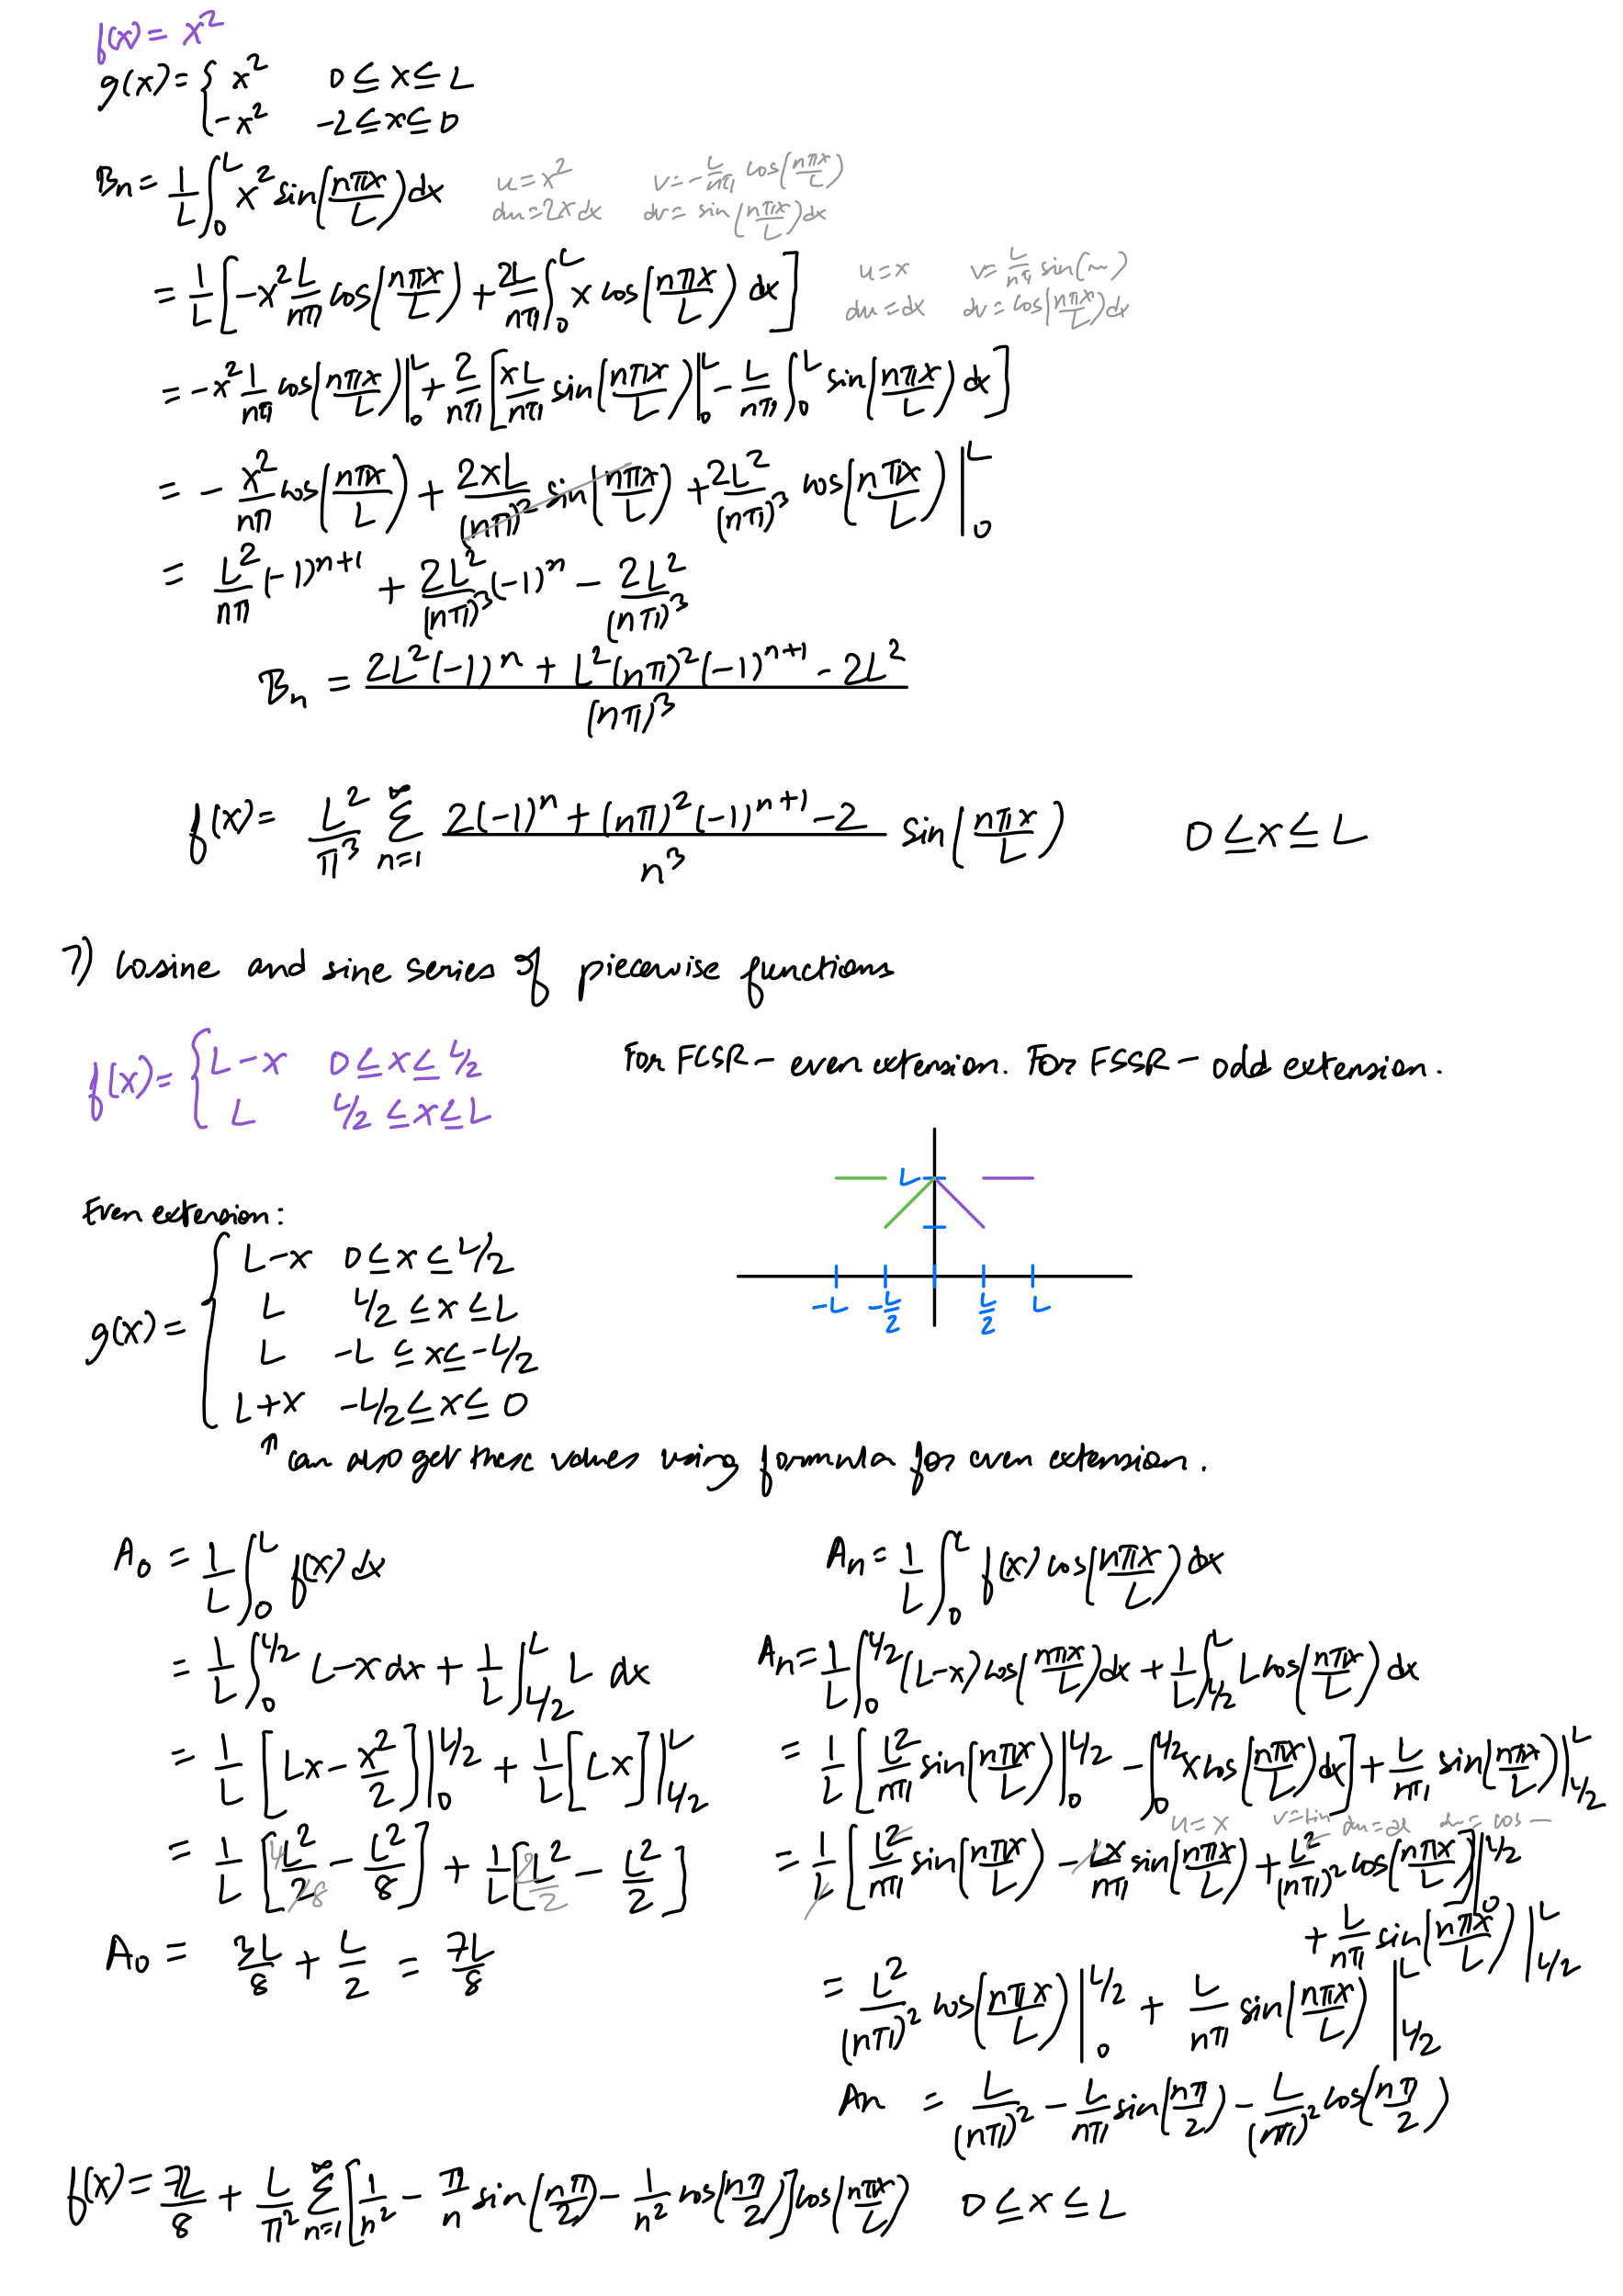 f(x) = x²
g(x) = { x²   0 ≤ x ≤ L
-x²   -2 ≤ x ≤ 0
Bn = 1/L ∫₀ᴸ x² sin(nπx/L) dx   u = x²   v = -L/nπ cos(nπx/L)
du = 2x dx   dv = sin(nπx/L) dx
= 1/L [ -x² L/nπ cos(nπx/L) + 2L/nπ ∫₀ᴸ x cos(nπx/L) dx ]   u = x   v = L/nπ sin(~)
du = dx   dv = cos(nπx/L) dx
= -x² 1/nπ cos(nπx/L) |₀ᴸ + 2/nπ [ xL/nπ sin(nπx/L) |₀ᴸ - L/nπ ∫₀ᴸ sin(nπx/L) dx ]
= - x²/nπ cos(nπx/L) + 2xL/(nπ)² sin(nπx/L) + 2L²/(nπ)³ cos(nπx/L) |₀ᴸ
= L²/nπ (-1)ⁿ⁺¹ + 2L²/(nπ)³ (-1)ⁿ - 2L²/(nπ)³
Bn = (2L²(-1)ⁿ + L²(nπ)²(-1)ⁿ⁺¹ - 2L²)/(nπ)³
f(x) = L²/π³ ∑ₙ₌₁^∞ (2(-1)ⁿ + (nπ)²(-1)ⁿ⁺¹ - 2)/n³ sin(nπx/L)   0 ≤ x ≤ L
7) Cosine and sine series of piecewise functions
f(x) = { L-x   0 ≤ x ≤ L/2   For FCSR - even extension. For FSSR - odd extension.
L   L/2 ≤ x ≤ L
L
-L   -L/2   L/2   L
Even extension:
g(x) = { L-x   0 ≤ x ≤ L/2
L   L/2 ≤ x ≤ L
L   -L ≤ x ≤ -L/2
L+x   -L/2 ≤ x ≤ 0
↑ can also get these values using formula for even extension.
A₀ = 1/L ∫₀ᴸ f(x) dx
= 1/L ∫₀^(L/2) L-x dx + 1/L ∫_(L/2)^L L dx
= 1/L [ Lx - x²/2 ] |₀^(L/2) + 1/L [Lx] |_(L/2)^L
= 1/L [ 4L²/2 8 - L²/8 ] + 1/L [ 2L²/2 - L²/2 ]
A₀ = 3L/8 + L/2 = 7L/8
An = 1/L ∫₀ᴸ f(x) cos(nπx/L) dx
An = 1/L ∫₀^(L/2) (L-x) cos(nπx/L) dx + 1/L ∫_(L/2)^L L cos(nπx/L) dx
= 1/L [ L²/nπ sin(nπx/L) |₀^(L/2) - ∫₀^(L/2) x cos(nπx/L) dx ] + L/nπ sin(nπx/L) |_(L/2)^L
u = x   v = L sin   du = dx   dv = cos —
= 1/L [ L²/nπ sin(nπx/L) - Lx/nπ sin(nπx/L) + L²/(nπ)² cos(nπx/L) ] |₀^(L/2)
+ L/nπ sin(nπx/L) |_(L/2)^L
= L²/(nπ)² cos(nπx/L) |₀^(L/2) + L/nπ sin(nπx/L) |_(L/2)^L
An = L/(nπ)² - L/nπ sin(nπ/2) - L/(nπ)² cos(nπ/2)
f(x) = 7L/8 + L/π² ∑ₙ₌₁^∞ [ 1/n² - π/n sin(nπ/2) - 1/n² cos(nπ/2) ] cos(nπx/L)   0 ≤ x ≤ L